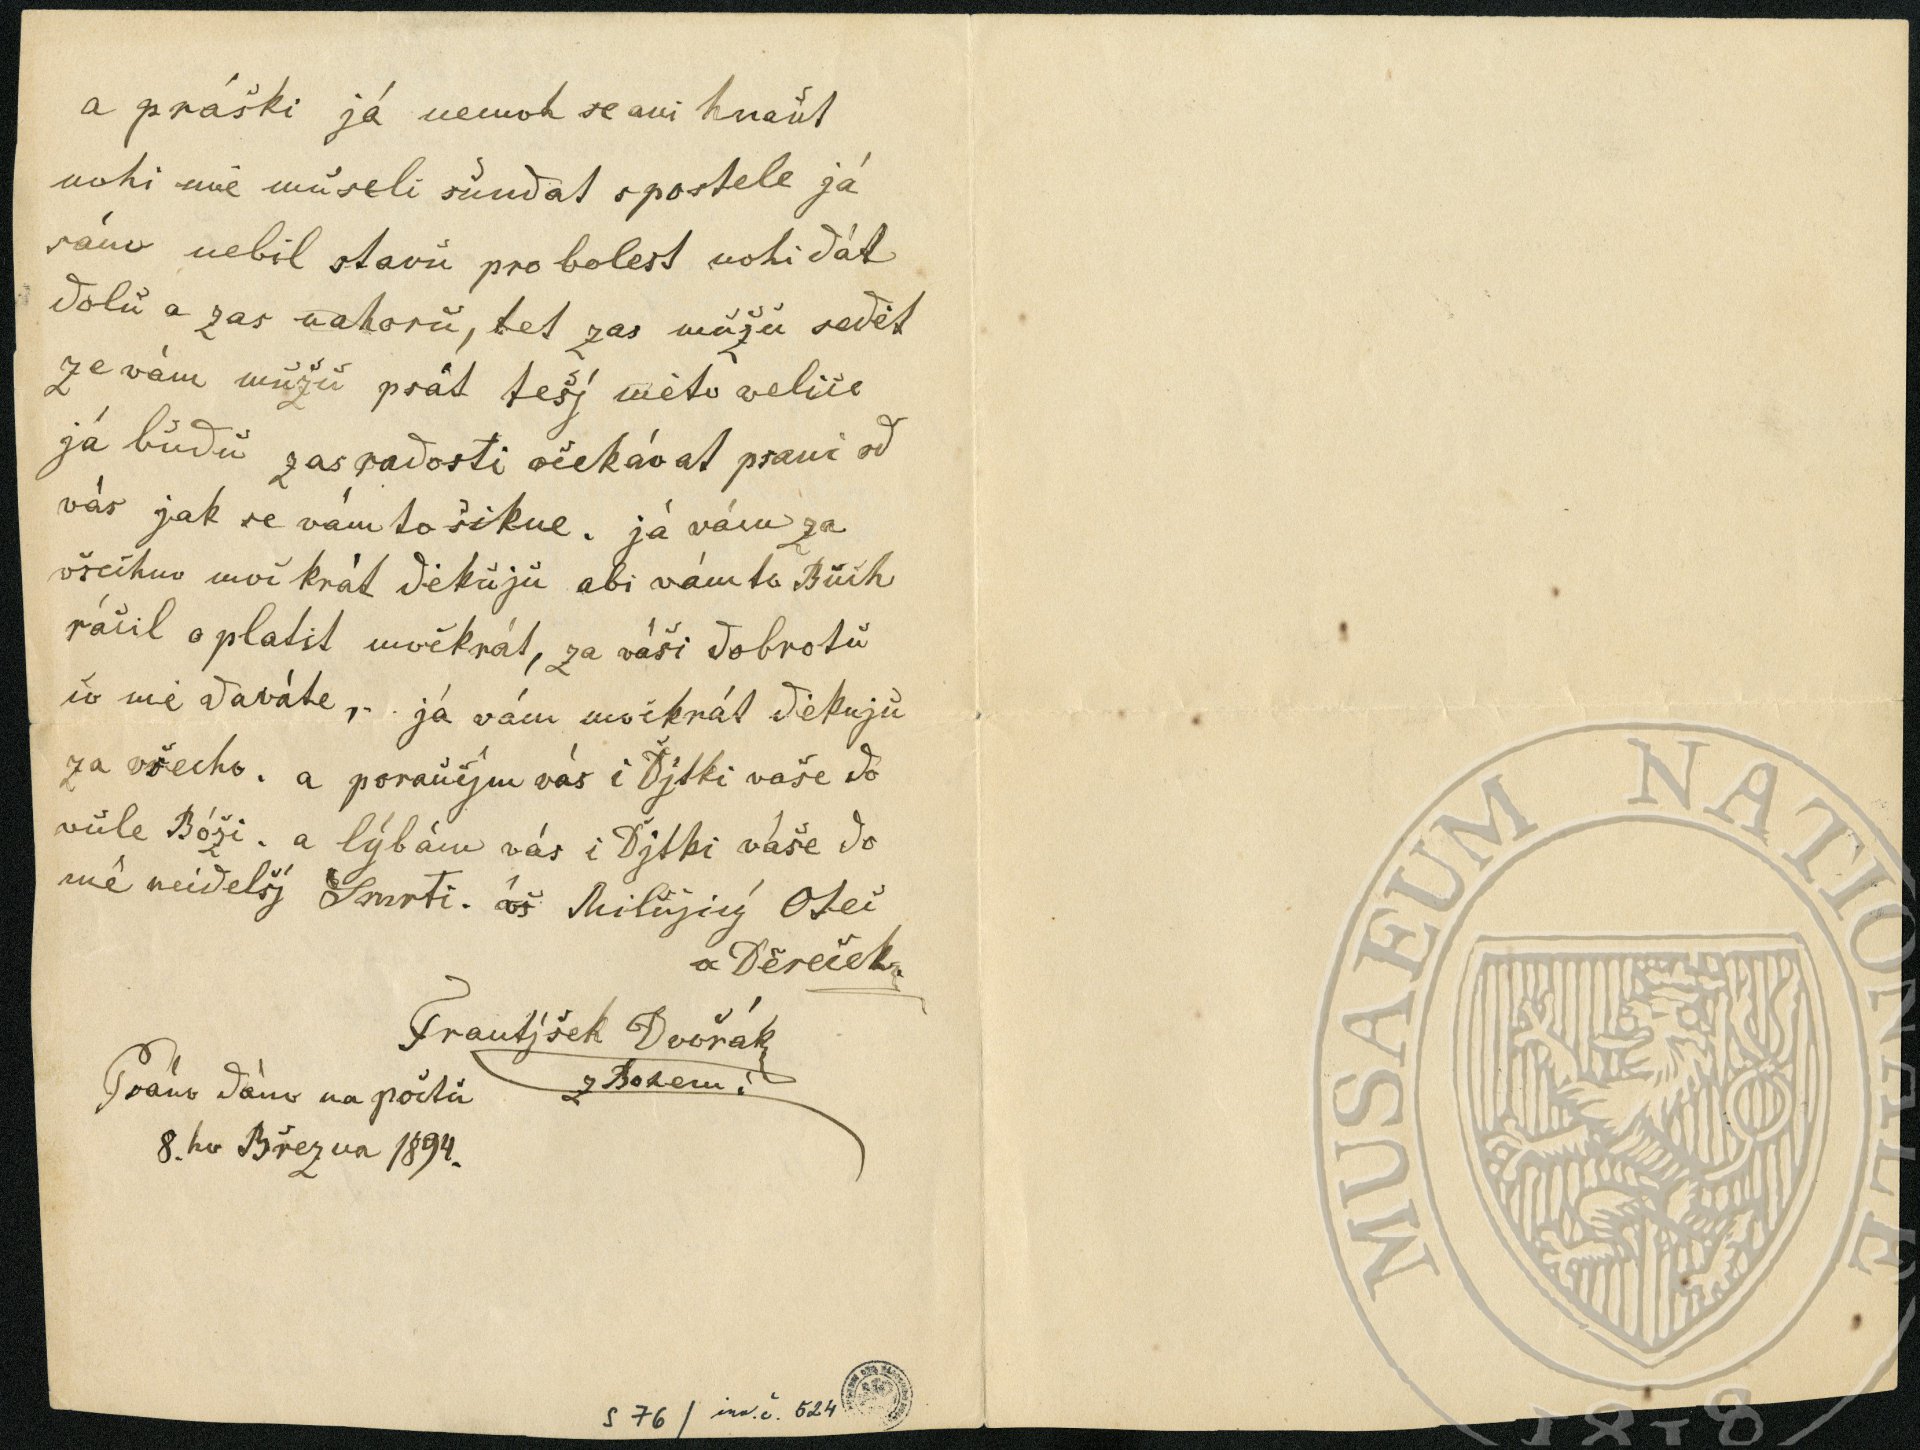 a práški já nemoh se ani hnaŭt
nohi mě mŭseli sŭndat spostele já
sám nebil stavŭ pro bolest nohi dát
dolŭ a zas nahorŭ, teť zas mŭžŭ sedět
ze vám mŭžŭ psát tešj mèto velice
já bŭdŭ zas radosti očekávat psani od
vás jak se vám to šikne. já vám za
všeciho mockrát děkŭjŭ abi vám to Bŭch
ráčil oplatit mockrát, za váši dobrotŭ
co mě daváte, já vám mockrát děkujŭ
za všecho. a poraŭčjm vás i Djtki vaše do
vŭle Bóži. a lýbám vás i Djtki váše do
mé neidelšj Smrti. áš Milŭjicý Otec
a Děreček
Frantjšek Dvořák
z Bohem i
Psáno dáno na poštŭ
8.ho Března 1894.
S 76 / inv.č. 524
MUSAEUM NATIONALE
1818